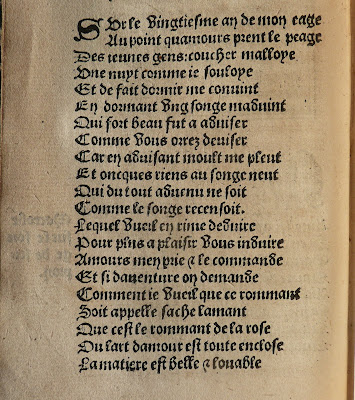 SVr le vingtiesme an de mon eage
Au point quamours prent le peage
Des ieunes gens: coucher malloye
Vne nuyt comme ie souloye
Et de fait dormir me conuint
En dormant vng songe maduint
Qui fort beau fut a aduiser
Comme vous orrez deuiser
Car en aduisant moult me pleut
Et oncques riens au songe neut
Qui du tout aduenu ne soit
Comme le songe recensoit.
Lequel vueil en rime deduire
Pour plus a plaisir vous induire
Amours men prie & le commande
Et si dauenture on demande
Comment ie vueil que ce rommant
Soit appelle sache lamant
Que cest le rommant de la rose
Ou lart damour est toute enclose
La matiere est belle & louable